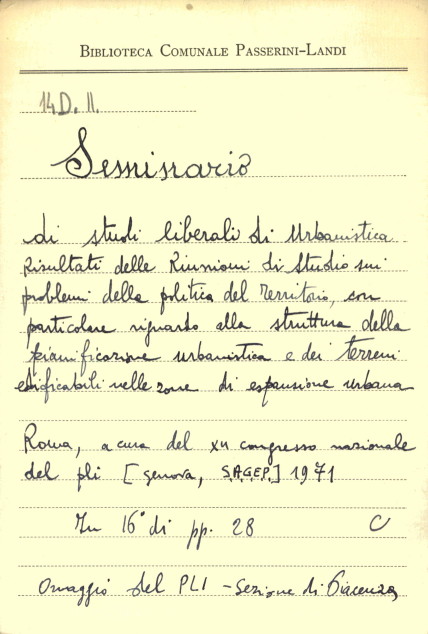 BIBLIOTECA COMUNALE PASSERINI-LANDI
14D. II.
Seminario
di studi liberali di Urbanistica
Risultati delle Riunioni di Studio sui
problemi della politica del Territorio, con
particolare riguardo alla struttura della
pianificazione urbanistica e dei terreni
edificabili nelle zone di espansione urbana
Roma, a cura del XII congresso nazionale
del pli [genova, S.A.G.E.P.] 1971
In 16° di pp. 28 C
Omaggio del PLI - Sezione di Piacenza